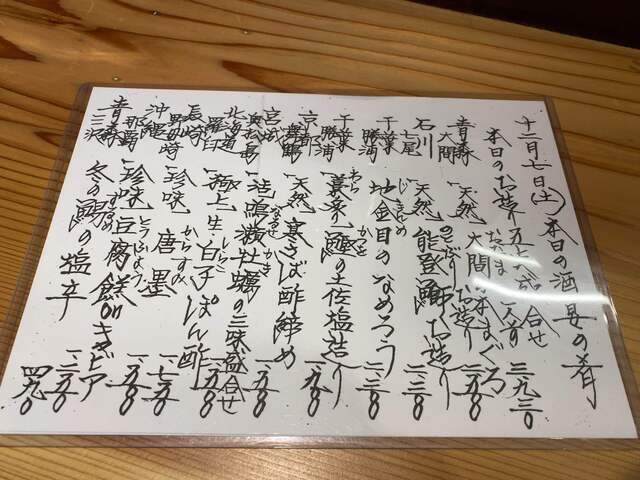 十二月七日(土)本日の酒宴の肴
本日のお造り五七八点盛合せ 一人前 三、九三〇
青森 大間 天然 大間の本まぐろお造り 二、五八〇
石川 七尾 天然 能登鰤お造り 二、二三〇
千葉 勝浦 地金目のなめろう じきんめ 一、二三〇
千葉 勝浦 藁焼き鰹の土佐塩造り わらやきかつお 一、九八〇
京都 舞鶴 天然 寒さば酢締め 一、五八〇
宮城 奥松島 鳴瀬牡蠣の三味盛合せ なるせかき 一、五八〇
北海道 羅臼 極上生・白子ぽん酢 しらこ 一、五八〇
長崎 野母崎 珍味 唐墨 からすみ 一、七五〇
沖縄 那覇 珍味 豆腐餻onキャビア とうふよう 一、二五〇
青森 三沢 冬の鰯の塩辛 四九〇